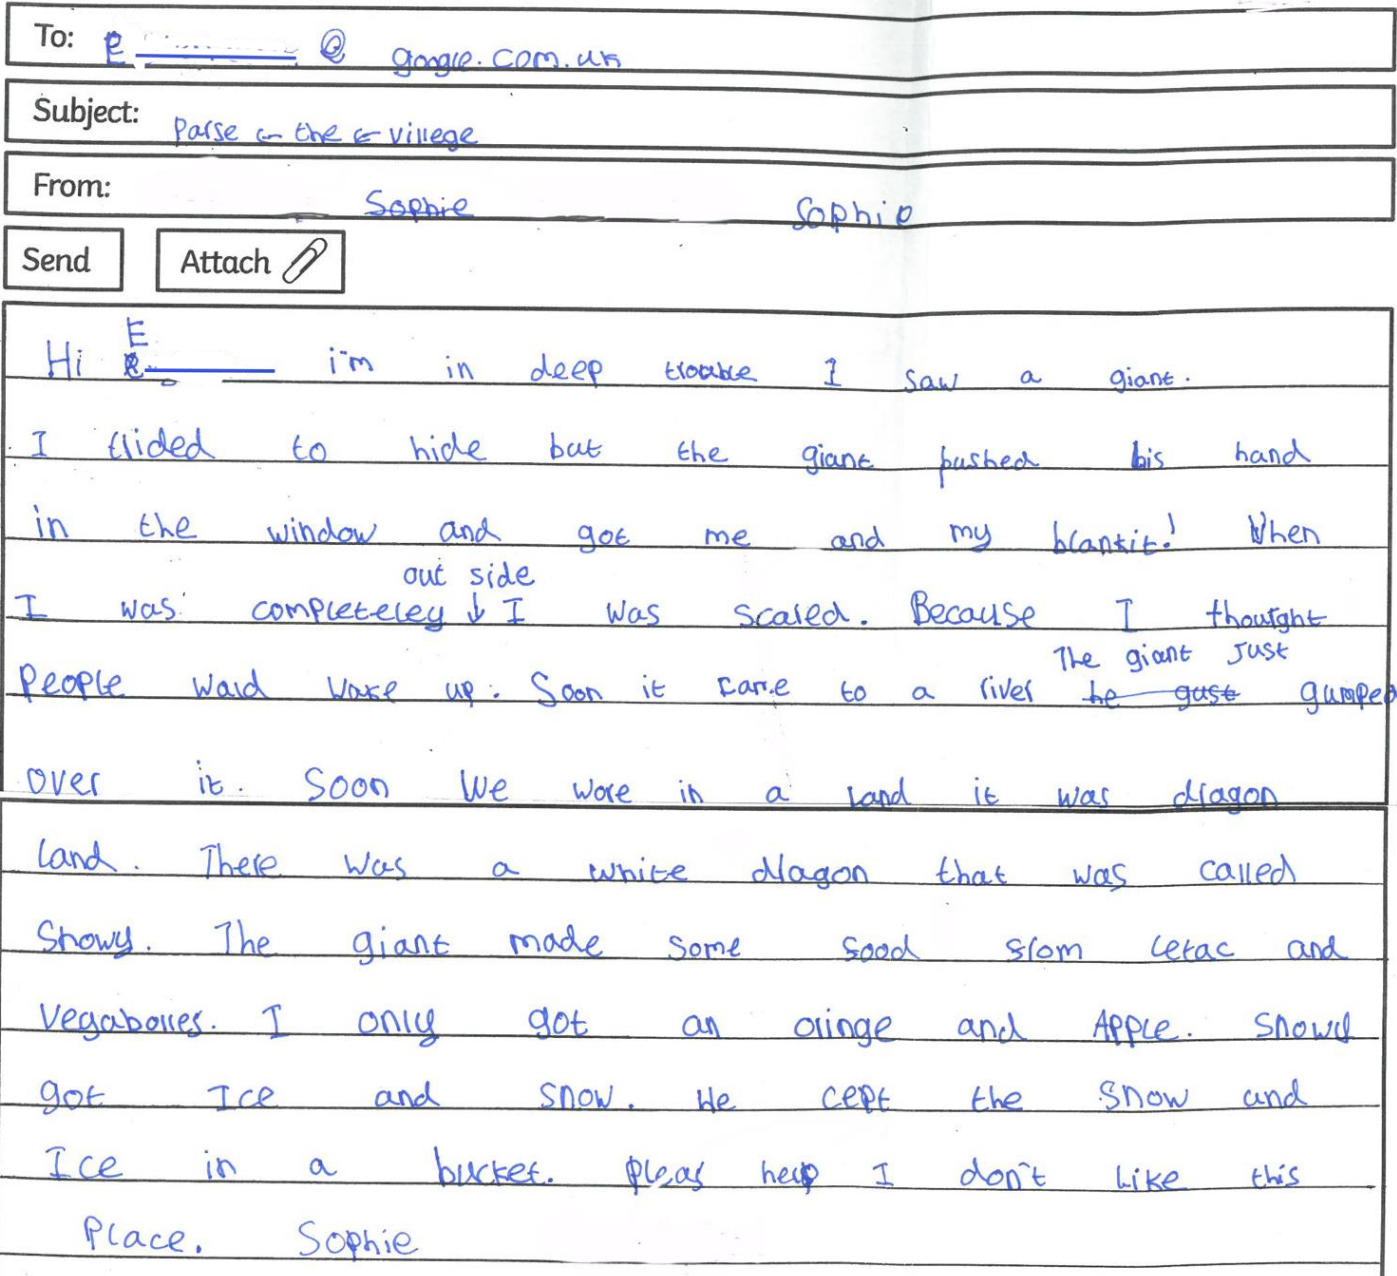 To: e @ google.com.uk
Subject: Parse ← the ← villege
From: Sophie Sophie
Send Attach
E
Hi i'm in deep trouble I saw a giant.
I trided to hide but the giant pushed his hand
in the window and got me and my blankit! When
out side
I was completeley ↓ I was scared. Because I thourght
The giant Just
People wald wake up. Soon it came to a river he gust gumped
over it. Soon We wore in a Land it was dragon
land. There was a white dragon that was called
Snowy. The giant made some food from letac and
Vegabolles. I only got an oringe and APPLe. Snowy
got Ice and snow. He cept the snow and
Ice in a bucket. Pleas help I don't Like this
Place. Sophie